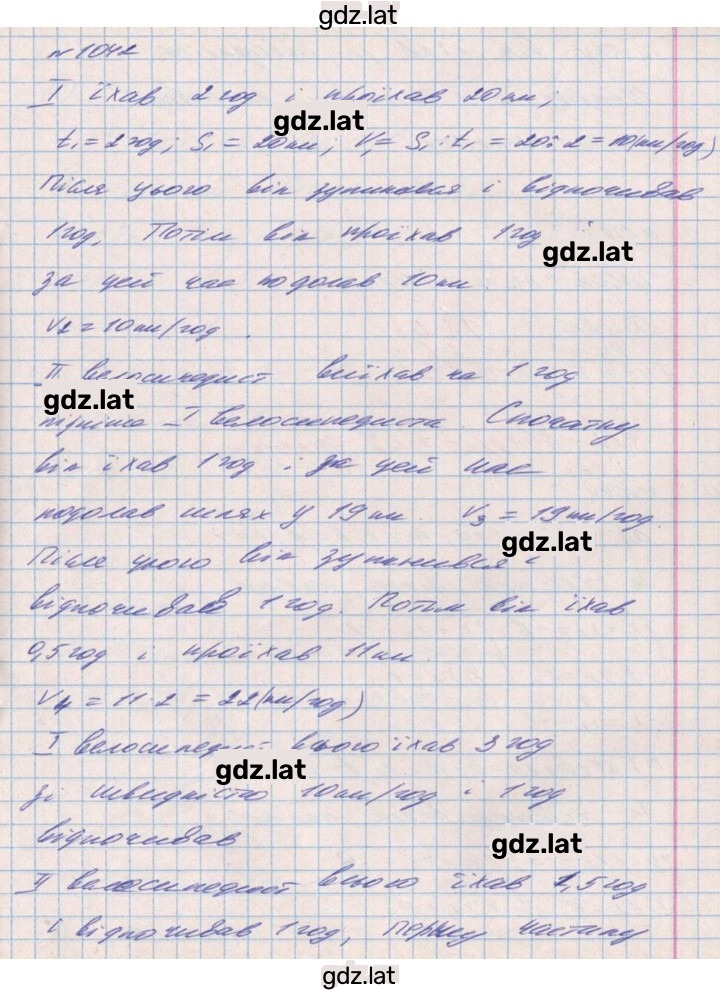 gdz.lat
№ 1042
I їхав 2 год і проїхав 20 км;
gdz.lat
t₁ = 2 год; S₁ = 20 км; V₁ = S₁ : t₁ = 20 : 2 = 10 (км/год)
Після цього він зупинився і відпочивав
1 год. Потім він проїхав 1 год
gdz.lat
за цей час подолав 10 км.
V₂ = 10 км/год.
II велосипедист виїхав на 1 год
gdz.lat
пізніше I велосипедиста. Спочатку
він їхав 1 год і за цей час
подолав шлях у 19 км. V₃ = 19 км/год.
gdz.lat
Після цього він зупинився і
відпочивав 1 год. Потім він їхав
0,5 год і проїхав 11 км.
V₄ = 11 · 2 = 22 (км/год)
I велосипедист всього їхав 3 год
gdz.lat
зі швидкістю 10 км/год і 1 год
відпочивав
gdz.lat
II велосипедист всього їхав 1,5 год
і відпочивав 1 год, першу частину
gdz.lat